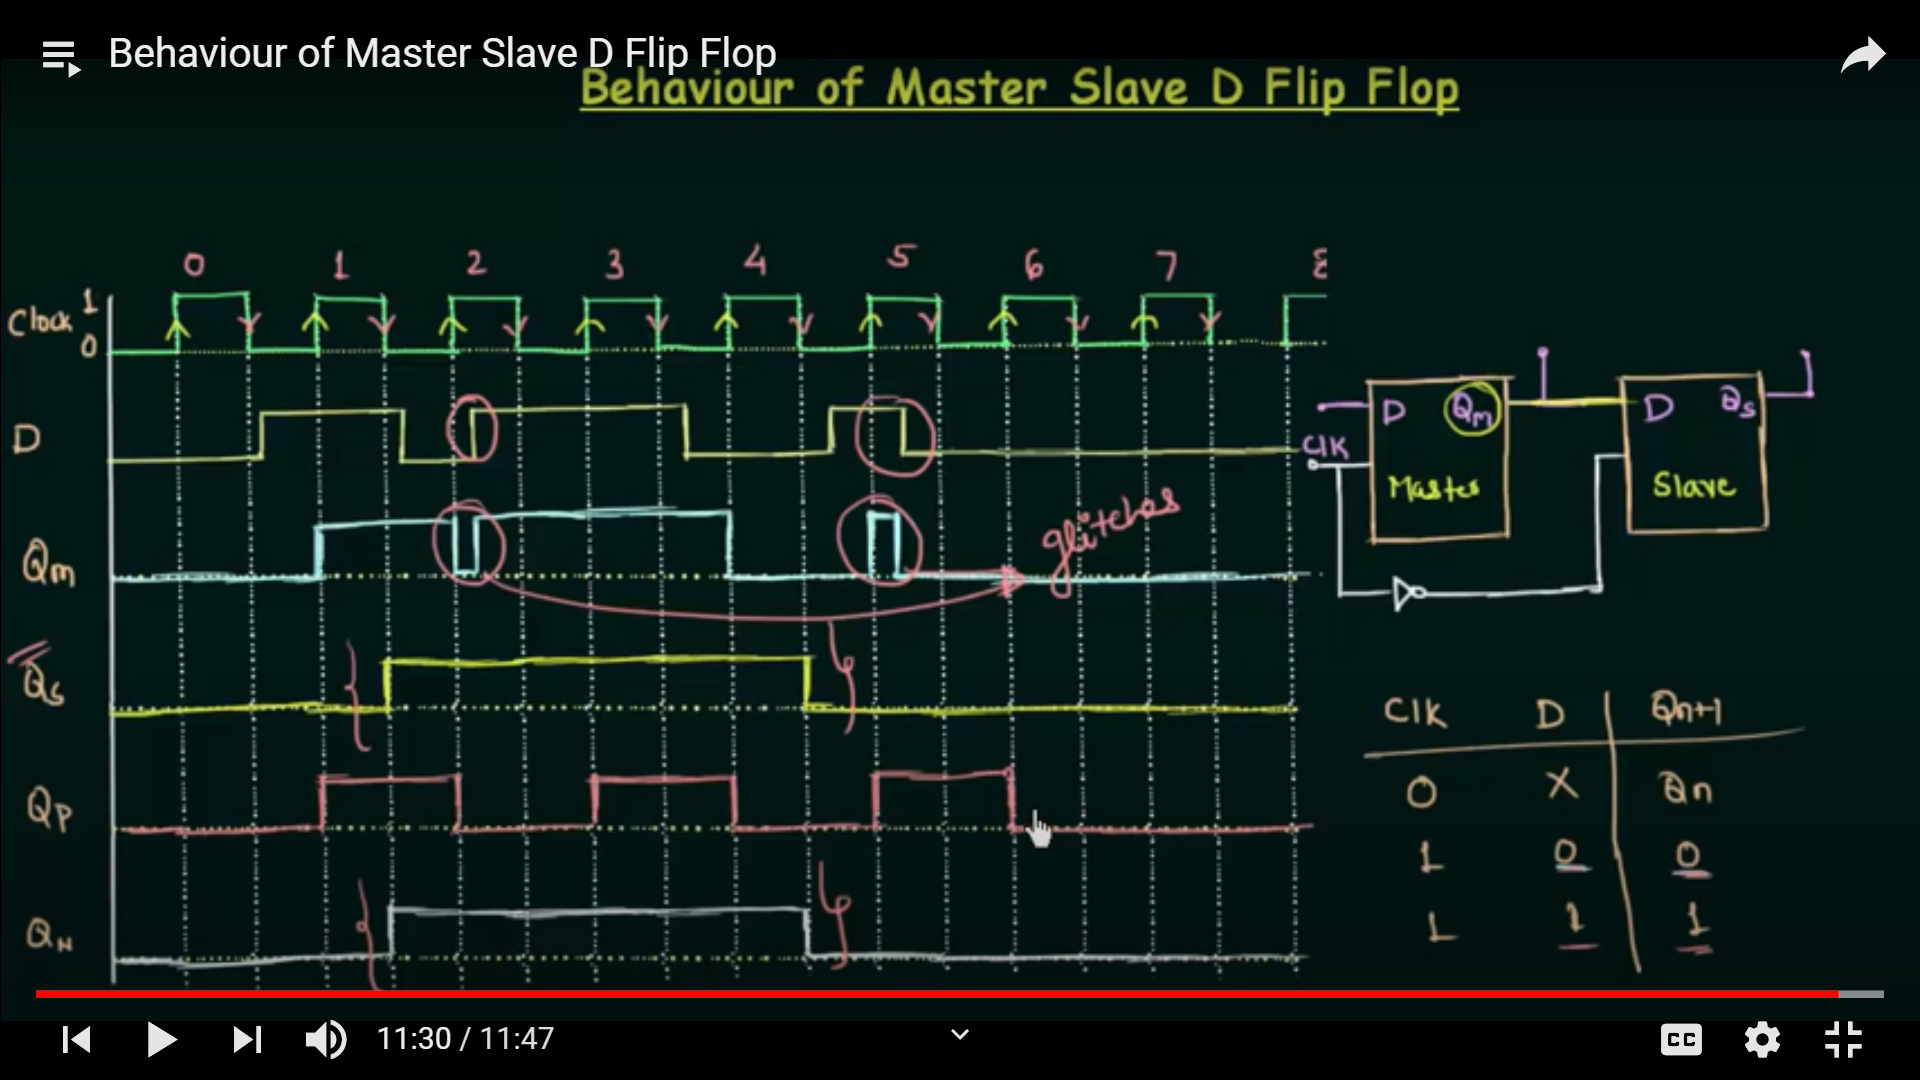 Behaviour of Master Slave D Flip Flop
Behaviour of Master Slave D Flip Flop
0 1 2 3 4 5 6 7 8
Clock 1
0
D
Qm
glitches
Qs
QP
QN
D Qm
D Qs
Clk
Master
Slave
Clk D Qn+1
0 X Qn
1 0 0
1 1 1
11:30 / 11:47
CC